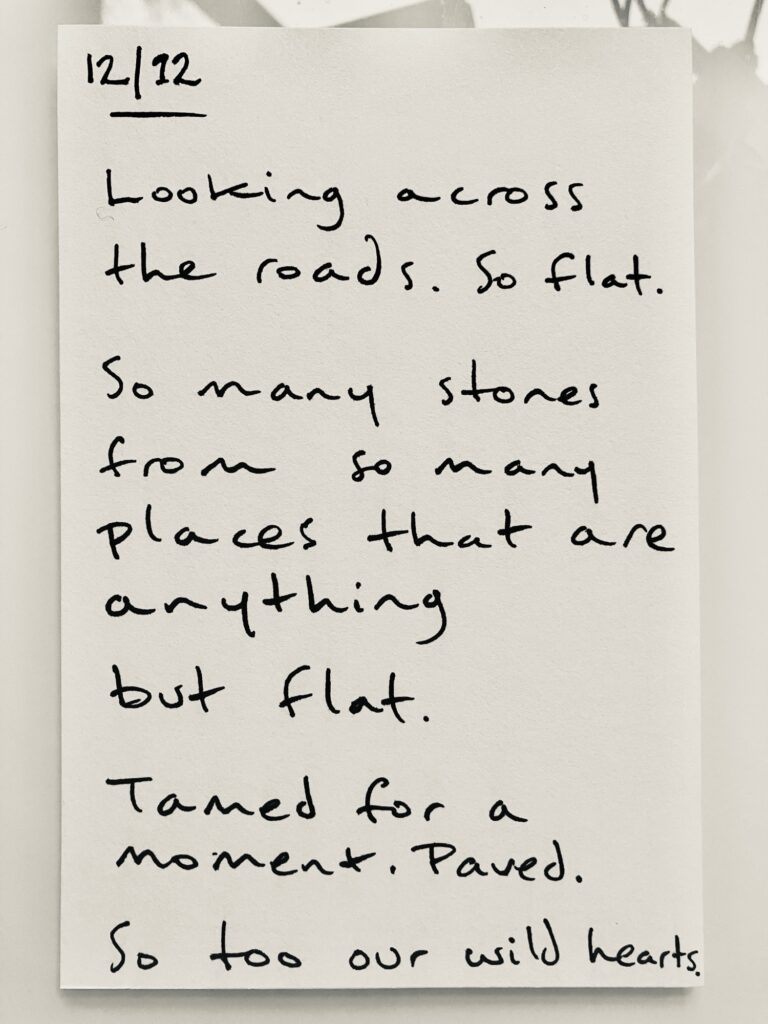 12/12
Looking across
the roads. So flat.
So many stones
from so many
places that are
anything
but flat.
Tamed for a
moment. Paved.
So too our wild hearts.